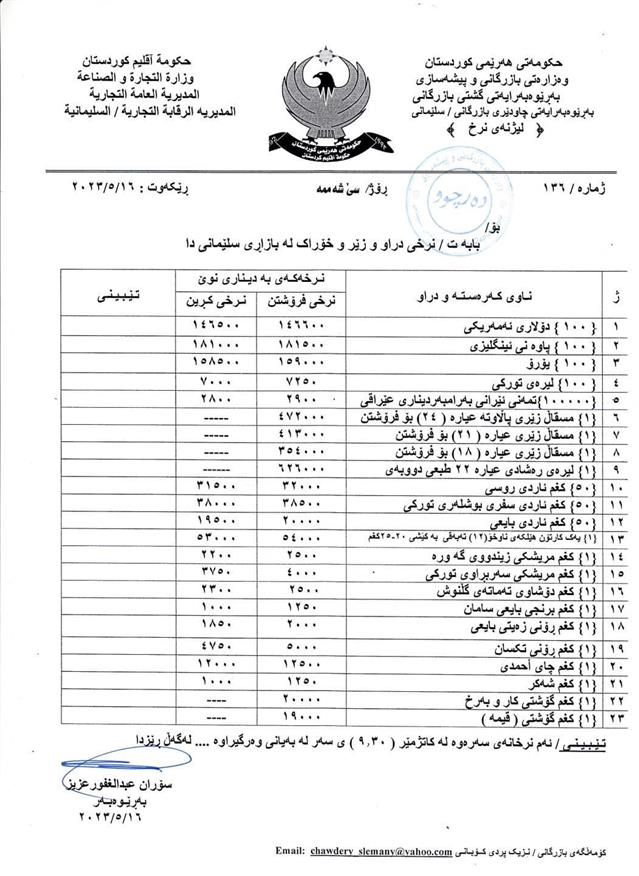 حکومەتی هەرێمی کوردستان
وەزارەتی بازرگانی و پیشەسازی
بەڕێوەبەرایەتی گشتی بازرگانی
بەڕێوەبەرایەتی چاودێری بازرگانی / سلێمانی
﴿ لیژنەی نرخ ﴾
حكومة أقليم كوردستان
وزارة التجارة و الصناعة
المديرية العامة التجارية
المديريه الرقابة التجارية / السليمانية
حکومەتی هەرێمی کوردستان
حكومة اقليم كردستان
ژمارە / ١٣٦ ڕۆژ/ سێ شەممە ڕێکەوت : ٢٠٢٣/٥/١٦
دەرچوو
بۆ/
بابە ت / نرخی دراو و زێر و خۆراک لە بازاڕی سلێمانی دا
ژ ناوی کەرەستە و دراو نرخەکەی بە دیناری نوێ تێبینی
نرخی فرۆشتن نرخی کڕین
١ {١٠٠} دۆلاری ئەمەریکی ١٤٦٦٠٠ ١٤٦٥٠٠
٢ {١٠٠} پاوە نی ئینگلیزی ١٨١٥٠٠ ١٨١٠٠٠
٣ {١٠٠} یۆرۆ ١٥٩٠٠٠ ١٥٨٥٠٠
٤ {١٠٠} لیرەی تورکی ٧٢٥٠ ٧٠٠٠
٥ {١٠٠٠٠٠}تمەنی ئێرانی بەرامبەردیناری عێراقی ٢٩٠٠ ٢٨٠٠
٦ {١} مسقاڵ زێری پاڵاوتە عیارە ( ٢٤ ) بۆ فرۆشتن ٤٧٢٠٠٠ -----
٧ {١} مسقاڵ زێری عیارە ( ٢١ ) بۆ فرۆشتن ٤١٣٠٠٠ -----
٨ {١} مسقاڵ زێری عیارە ( ١٨ ) بۆ فرۆشتن ٣٥٤٠٠٠ -----
٩ {١} لیرەی ڕەشادی عیارە ٢٢ طبعی دووبەی ٦٢٦٠٠٠ ------
١٠ {٥٠} کغم ئاردی روسی ٣٢٠٠٠ ٣١٥٠٠
١١ {٥٠} کغم ئاردی سفری بوشلەری تورکی ٣٨٥٠٠ ٣٨٠٠٠
١٢ {٥٠} کغم ئاردی بایعی ٢٠٠٠٠ ١٩٥٠٠
١٣ {١} یەک کارتۆن هێلکەی ناوخۆ(١٢) تەبەقی بە کێشی ٢٠-٢٥کغم ٥٤٠٠٠ ٥٣٠٠٠
١٤ {١} کغم مریشکی زیندووی گە ورە ٢٥٠٠ ٢٢٠٠
١٥ {١} کغم مریشکی سەربڕاوی تورکی ٤٠٠٠ ٣٧٥٠
١٦ {١} کغم دۆشاوی تەماتەی گڵنوش ٢٥٠٠ ٢٣٠٠
١٧ {١} کغم برنجی بایعی سامان ١٢٥٠ ١٠٠٠
١٨ {١} کغم ڕۆنی زەیتی بایعی ٢٠٠٠ ١٨٥٠
١٩ {١} کغم ڕۆنی تکسان ٥٠٠٠ ٤٧٥٠
٢٠ {١} کغم چای أحمدی ١٢٥٠٠ ١٢٠٠٠
٢١ {١} کغم شەکر ١٢٥٠ ١٠٠٠
٢٢ {١} کغم گۆشتی کار و بەرخ ٢٠٠٠٠ ----
٢٣ {١} کغم گۆشتی ( قیمە ) ١٩٠٠٠ ----
تێبینی / ئەم نرخانەی سەرەوە لە کاتژمێر ( ٩,٣٠ ) ی سەر لە بەیانی وەرگیراوە .... لەگەڵ ڕێزدا
سۆران عبدالغفورعزیز
بەڕێوەبەر
٢٠٢٣/٥/١٦
کۆمەڵگەی بازرگانی / نزیک پردی کۆبانی Email: chawdery_slemany@yahoo.com